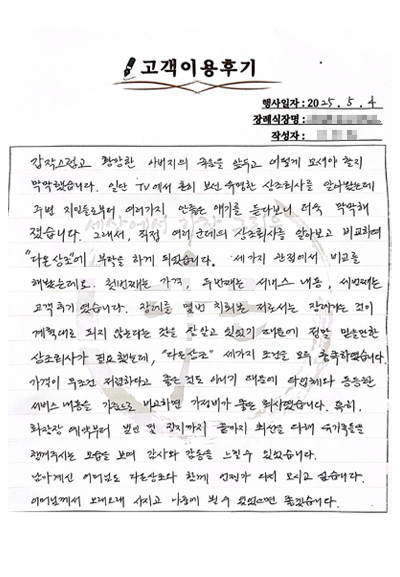 고객이용후기
행사일자 : 2025. 5. 4
장례식장명 :
작성자 :
갑작스럽고 황망한 아버지의 죽음을 앞두고 어떻게 모셔야 할지
막막했습니다. 일단 TV에서 흔히 보던 유명한 상조회사를 알아봤는데
주변 지인들로부터 여러가지 안좋은 얘기를 듣다보니 더욱 막막해
졌습니다. 그래서, 직접 여러군데의 상조회사를 알아보고 비교하여
"다온상조"에 부탁을 하게 되었습니다. 세가지 관점에서 비교를
해봤는데요. 첫번째는 가격, 두번째는 서비스 내용, 세번째는
고객후기 였습니다. 장례를 몇번 치뤄본 저로서는 장례라는 것이
계획대로 되지 않는다는 것을 잘 알고 있었기 때문에 정말 믿을만한
상조회사가 필요했는데, "다온상조" 세가지 조건을 모두 충족하였습니다.
가격이 무조건 저렴하다고 좋은것도 아니기 때문에 타업체와 동등한
서비스 내용을 기준으로 비교하면 가성비가 좋은 회사였습니다. 특히,
화장장 예약부터 발인 및 장지까지 끝까지 최선을 다해 유가족들을
챙겨주시는 모습을 보며 감사와 감동을 느낄수 있었습니다.
남아계신 어머님도 다온상조와 함께 언젠가 다시 모시고 싶습니다.
어머님께서 오래오래 사시고 나중에 뵐 수 있었으면 좋겠습니다.